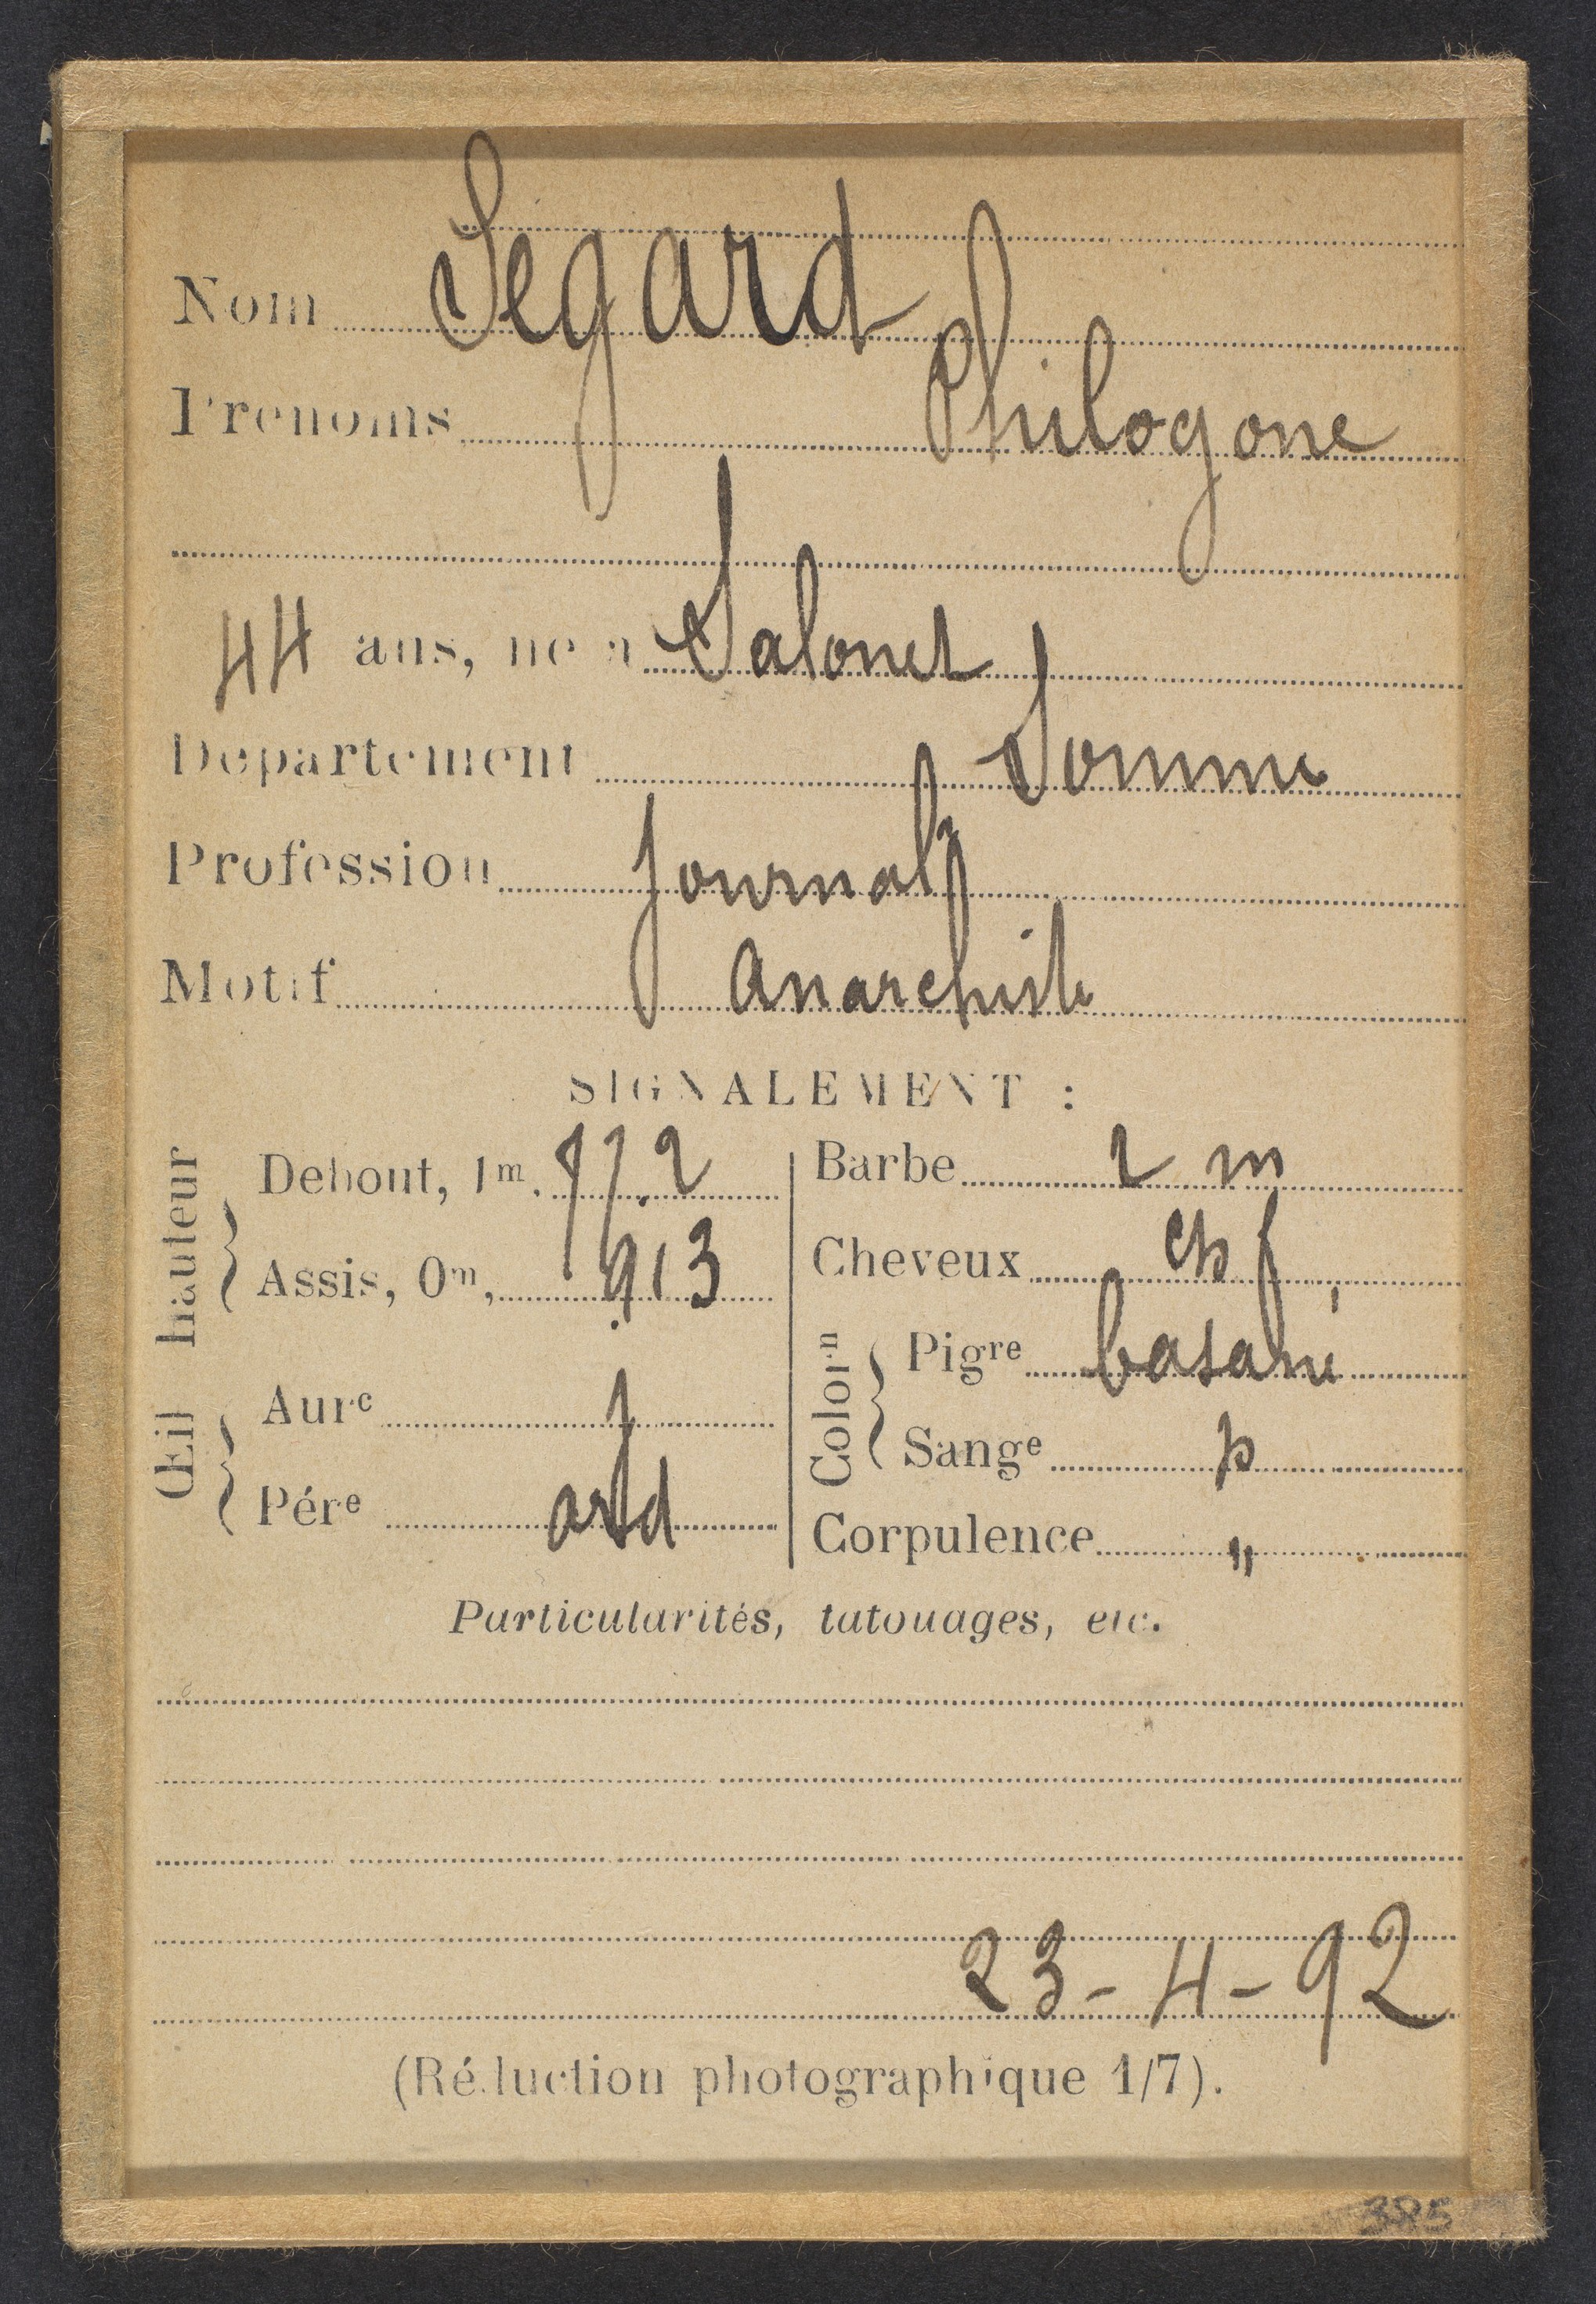 Nom Ségard
Prénoms Philogone
44 ans, né à Salonel
Département Somme
Profession Journalr
Motif Anarchiste
SIGNALEMENT :
hauteur
Debout, 1m. 77.2
Assis, 0m, 913
Œil
Aure 1
Pére
Barbe 2 m
Cheveux ch f
Colorn
Pigre basané
Sange p
Corpulence "
Particularités, tatouages, etc.
23-4-92
(Réduction photographique 1/7).
385